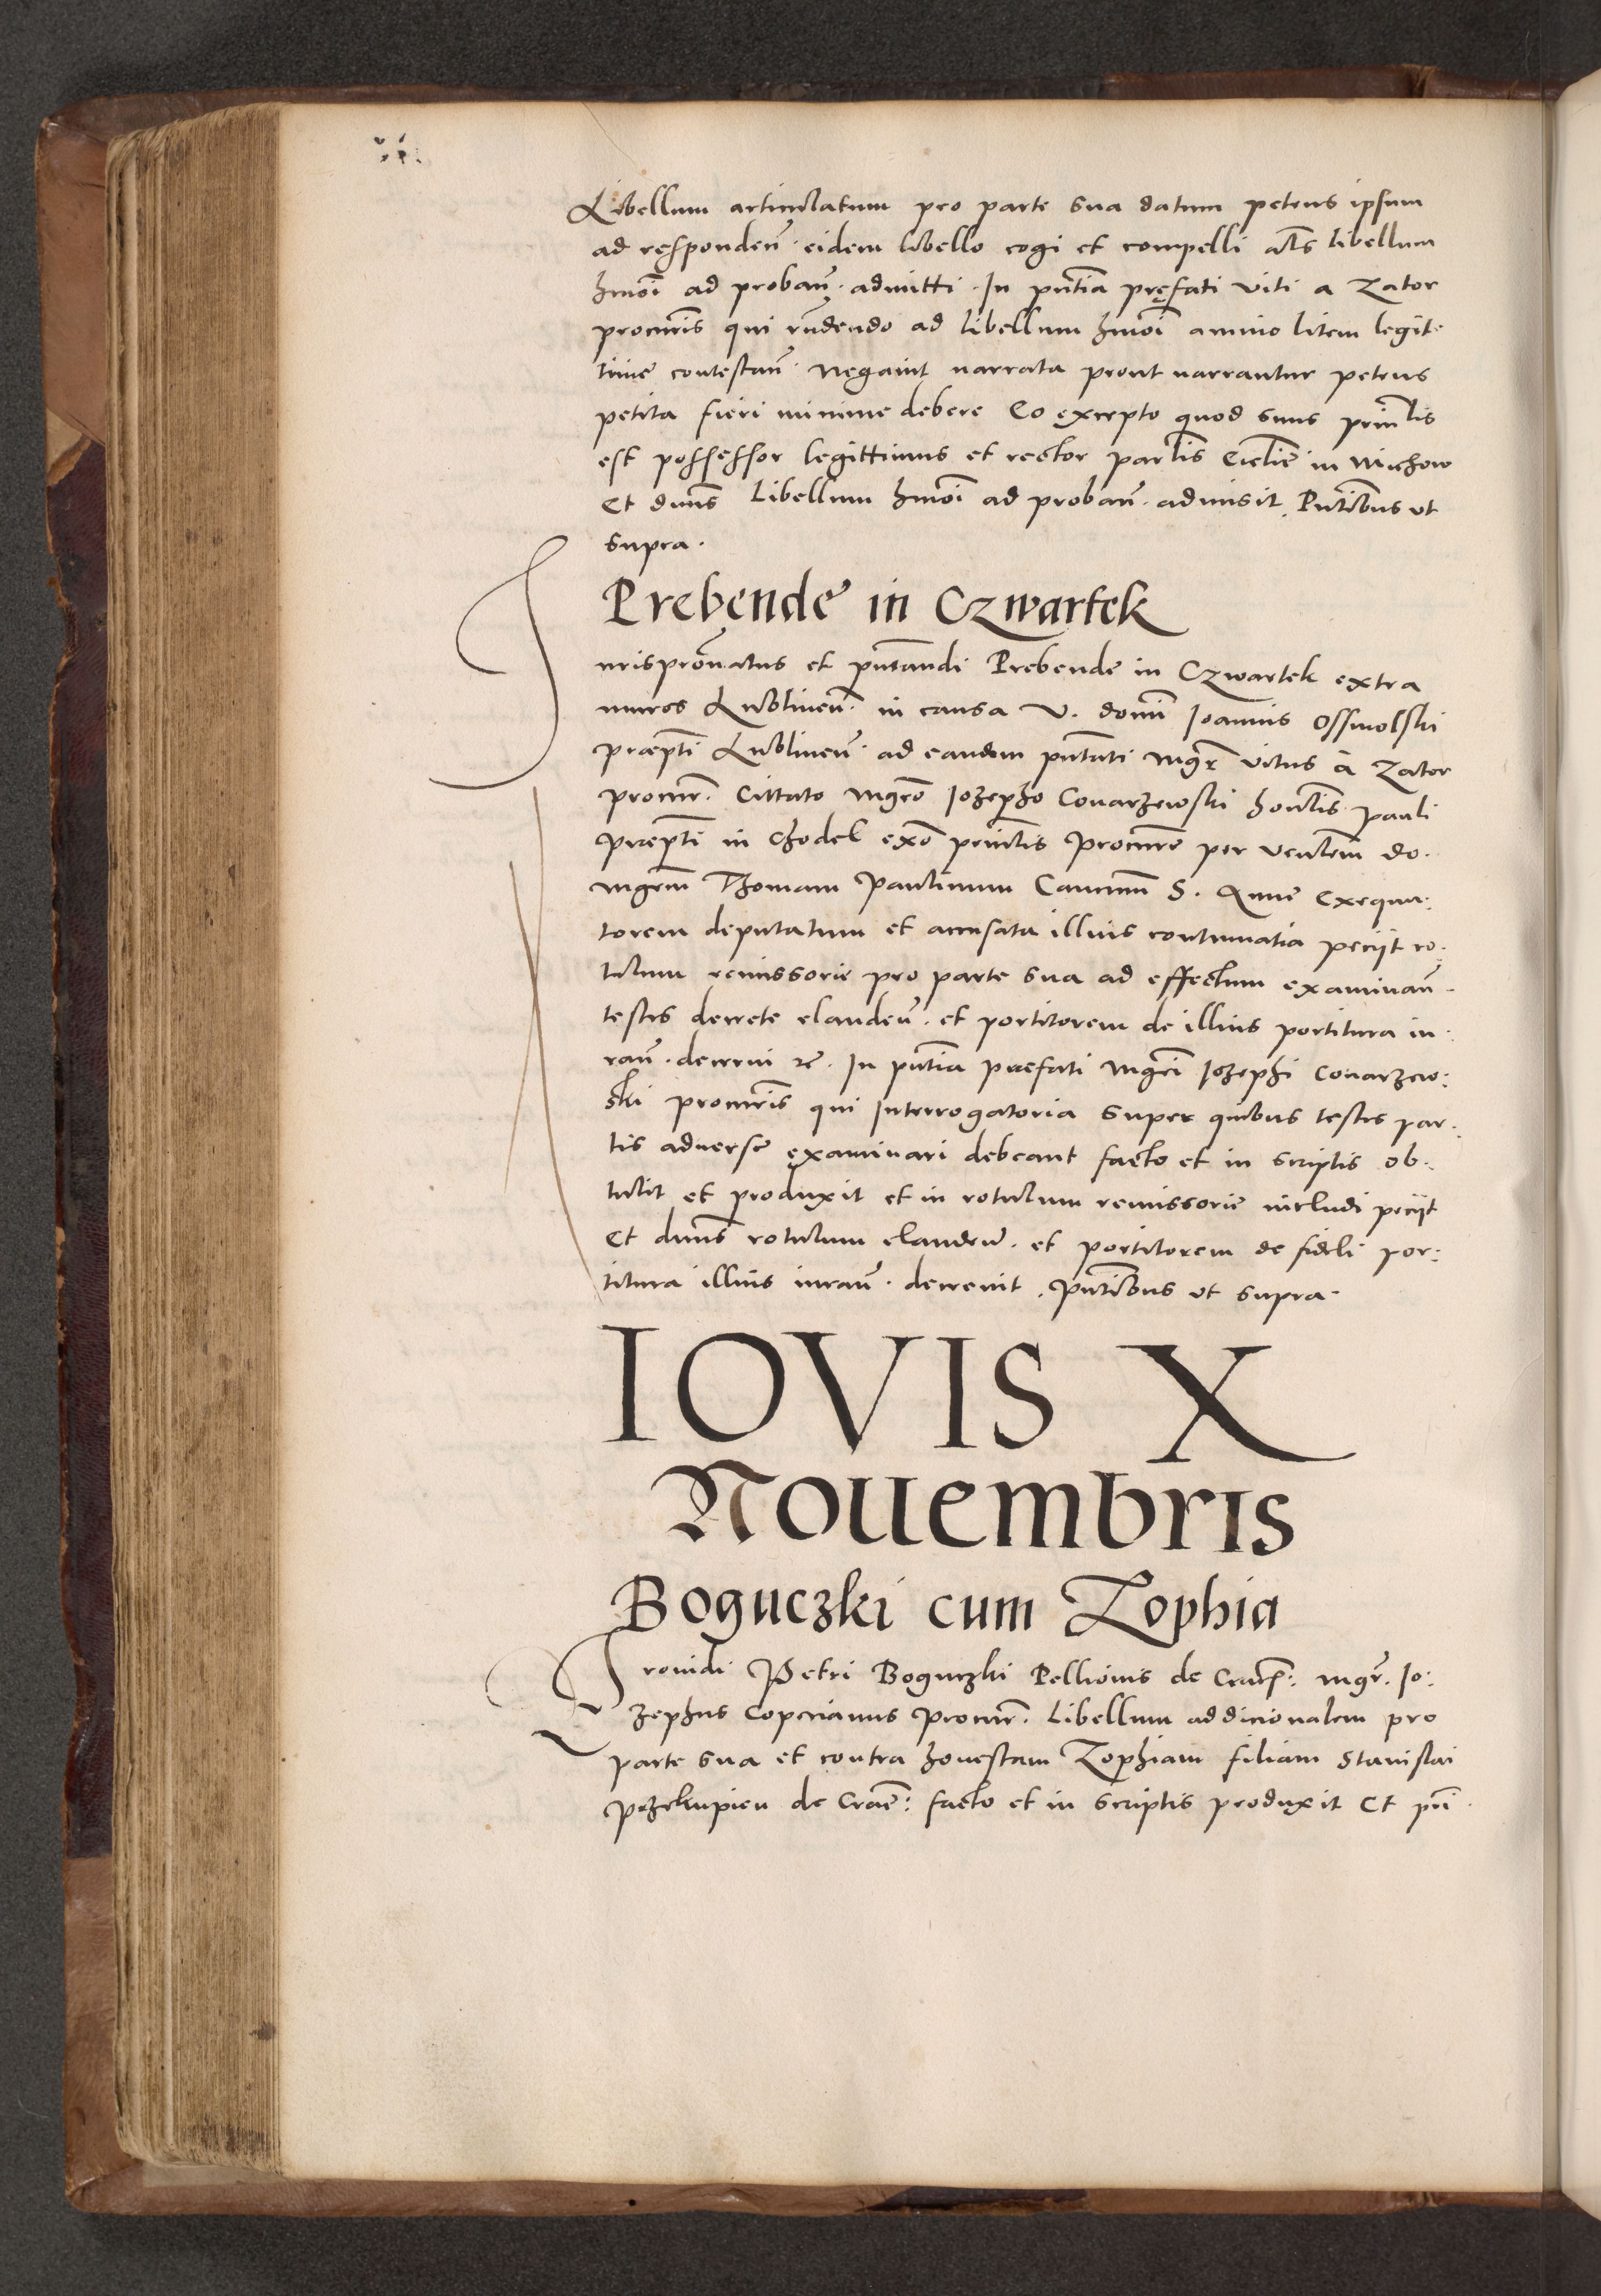 Libellum articulatum pro parte sua datum petens ipsum
ad respondeñ. eidem libello cogi et compelli als libellum
hmoi ad probañ. admitti. In pñtia pręfati Viti a Zator
procuris qui rñdendo ad libellum hmoi animo litem legit-
time contestañ. Negauit narrata prout narrantur petens
petita fieri minime debere Eo excepto quod suus prinlis
est possessor legittimus et rector parlis Ecclie in Michow
Et dnus Libellum hmoi ad probañ. admisit. Pñtibus ut
supra.
Prebende in Czwartek
Jurispronatus et pñtandi Prebende in Czwartek extra
muros Lublineñ. in causa V. domi Ioannis Ossmolski
præpti Lublineñ. ad eandem pñtati Mgr Vitus a Zator
procur. Cittato Mgro Iozepho Conarzewski honlis Pauli
præpti in Chodel exo prinlis procure per Venlem do.
Mgrm Thomam Paulinum Canicum S. Anne Exequu:
torem deputatum et accusata illius contumatia peciit ro:
tulum remissorie pro parte sua ad effectum examinañ.
testes decrete claudeñ. et portitorem de illius portitura iu:
rañ. decerni etc. In pñtia præfati Mgri Iozephi Conarzew:
ski procuris qui Interrogatoria super quibus testes par:
tis aduerse examinari debeant facto et in scriptis ob:
tulit et produxit et in rotulum remissorie includi peciit
Et dnus rotulum claudeñ. et portitorem de fideli por:
titura illius iurañ. decreuit. Pñtibus ut supra.
IOVIS X
Nouembris
Boguczki cum Zophia
Prouidi Petri Boguczki Pellionis de Crac: Mgr. Io:
zephus Coperianus Procur. Libellum addicionalem pro
parte sua et contra honestam Zophiam filiam Stanislai
Przekupien de Crac: facto et in scriptis produxit Et pñ